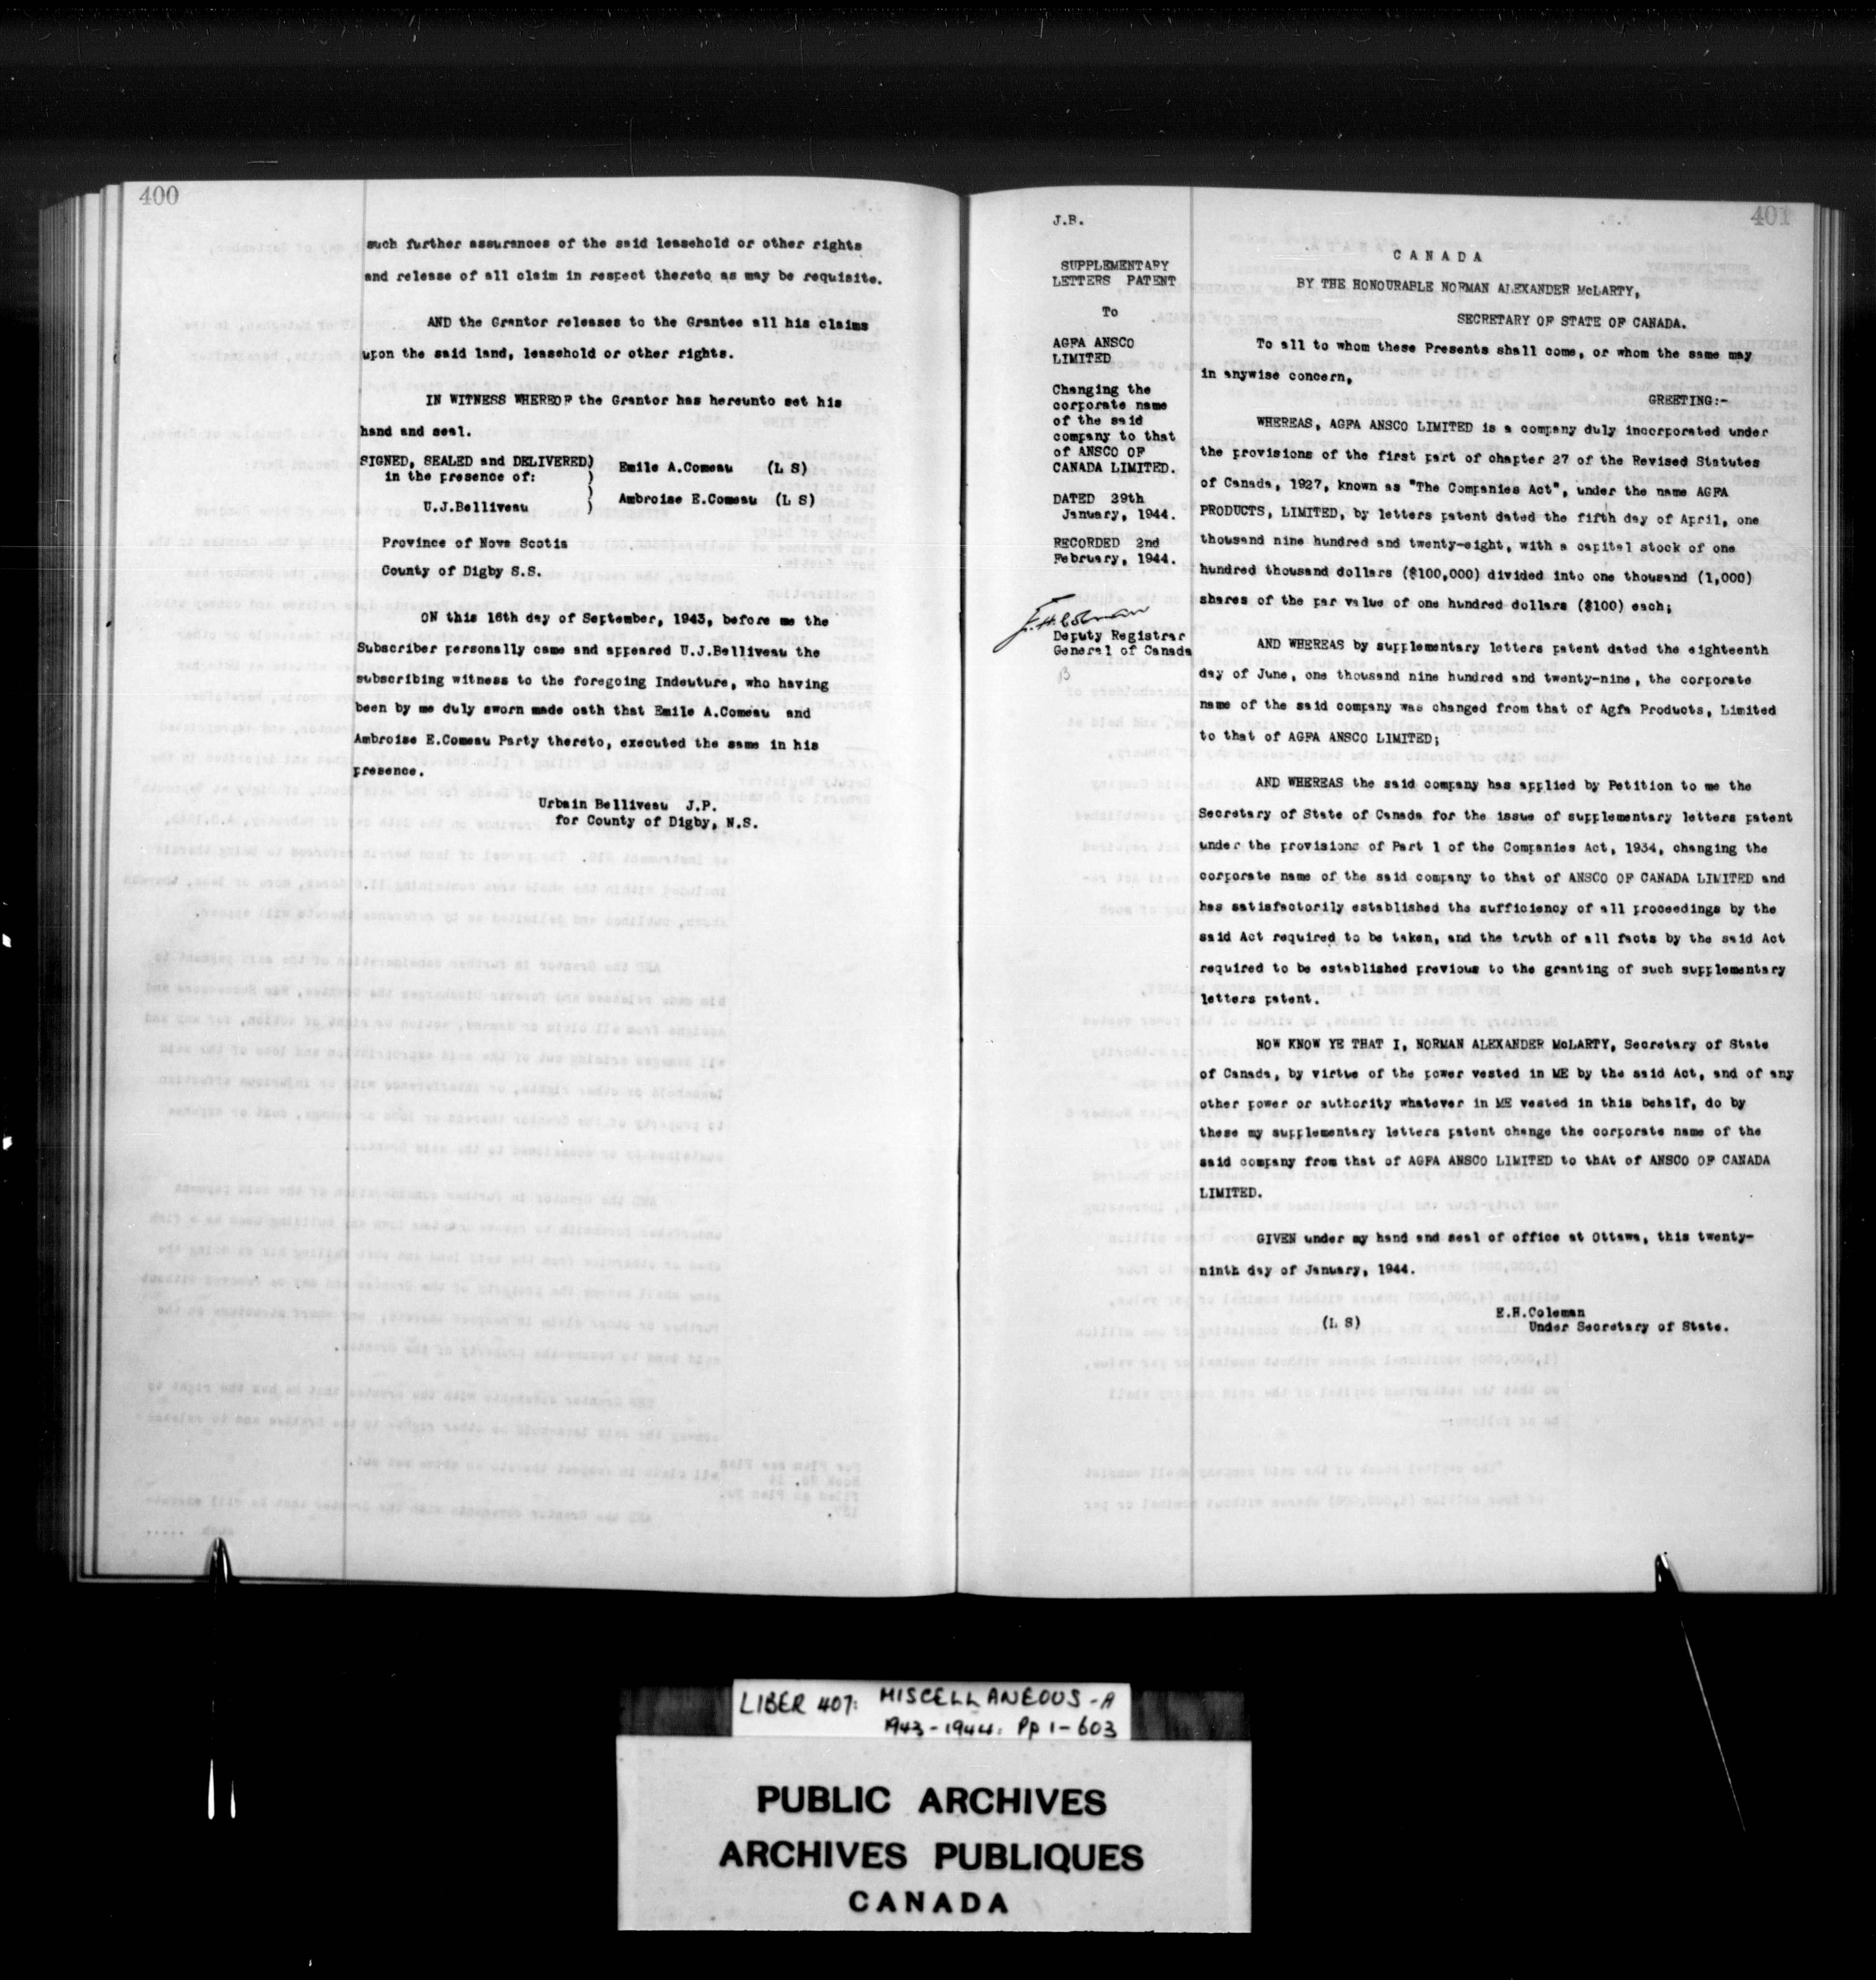 400
such further assurances of the said leasehold or other rights
and release of all claim in respect thereto as may be requisite.
AND the Grantor releases to the Grantee all his claims
upon the said land, leasehold or other rights.
IN WITNESS WHEREOF the Grantor has hereunto set his
hand and seal.
SIGNED, SEALED and DELIVERED)
in the presence of: )
)
U.J.Belliveau )
Emile A.Comeau (L S)
Ambroise E.Comeau (L S)
Province of Nova Scotia
County of Digby S.S.
ON this 16th day of September, 1943, before me the
Subscriber personally came and appeared U.J.Belliveau the
subscribing witness to the foregoing Indeuture, who having
been by me duly sworn made oath that Emile A.Comeau and
Ambroise E.Comeau Party thereto, executed the same in his
presence.
Urbain Belliveau J.P.
for County of Digby, N.S.
401
J.B.
SUPPLEMENTARY
LETTERS PATENT
To
AGFA ANSCO
LIMITED
Changing the
corporate name
of the said
company to that
of ANSCO OF
CANADA LIMITED.
DATED 29th
January, 1944.
RECORDED 2nd
February, 1944.
Deputy Registrar
General of Canada
CANADA
BY THE HONOURABLE NORMAN ALEXANDER McLARTY,
SECRETARY OF STATE OF CANADA.
To all to whom these Presents shall come, or whom the same may
in anywise concern,
GREETING:-
WHEREAS, AGFA ANSCO LIMITED is a company duly incorporated under
the provisions of the first part of chapter 27 of the Revised Statutes
of Canada, 1927, known as "The Companies Act", under the name AGFA
PRODUCTS, LIMITED, by letters patent dated the fifth day of April, one
thousand nine hundred and twenty-eight, with a capital stock of one
hundred thousand dollars ($100,000) divided into one thousand (1,000)
shares of the par value of one hundred dollars ($100) each;
AND WHEREAS by supplementary letters patent dated the eighteenth
day of June, one thousand nine hundred and twenty-nine, the corporate
name of the said company was changed from that of Agfa Products, Limited
to that of AGFA ANSCO LIMITED;
AND WHEREAS the said company has applied by Petition to me the
Secretary of State of Canada for the issue of supplementary letters patent
under the provisions of Part 1 of the Companies Act, 1934, changing the
corporate name of the said company to that of ANSCO OF CANADA LIMITED and
has satisfactorily established the sufficiency of all proceedings by the
said Act required to be taken, and the truth of all facts by the said Act
required to be established previous to the granting of such supplementary
letters patent.
NOW KNOW YE THAT I, NORMAN ALEXANDER McLARTY, Secretary of State
of Canada, by virtue of the power vested in ME by the said Act, and of any
other power or authority whatever in ME vested in this behalf, do by
these my supplementary letters patent change the corporate name of the
said company from that of AGFA ANSCO LIMITED to thAt of ANSCO OF CANADA
LIMITED.
GIVEN under my hand and seal of office at Ottawa, this twenty-
ninth day of January, 1944.
(L S)
E.H.Coleman
Under Secretary of State.
LIBER 407: MISCELLANEOUS-A
1943-1944: Pp 1-603
PUBLIC ARCHIVES
ARCHIVES PUBLIQUES
CANADA